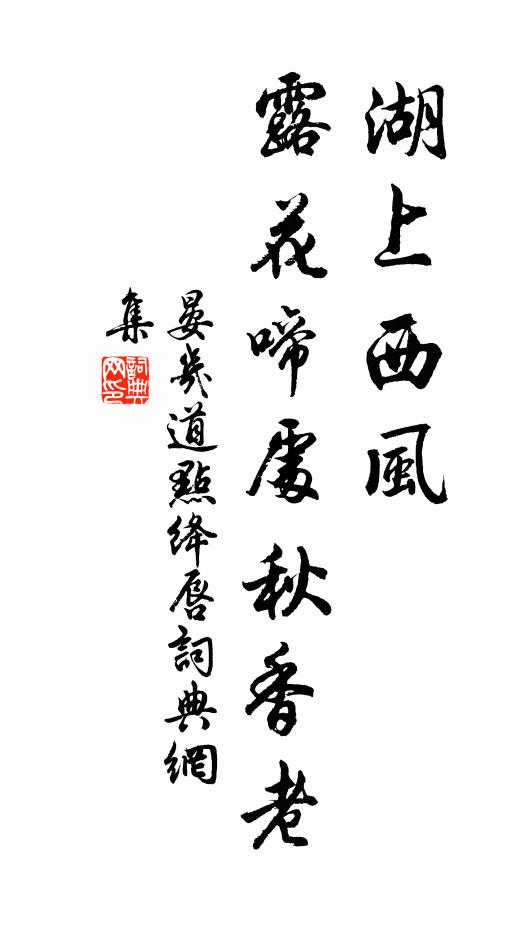 湖上西風
露花啼處秋香老
晏幾道點絳唇詞典網
集
詞典網印